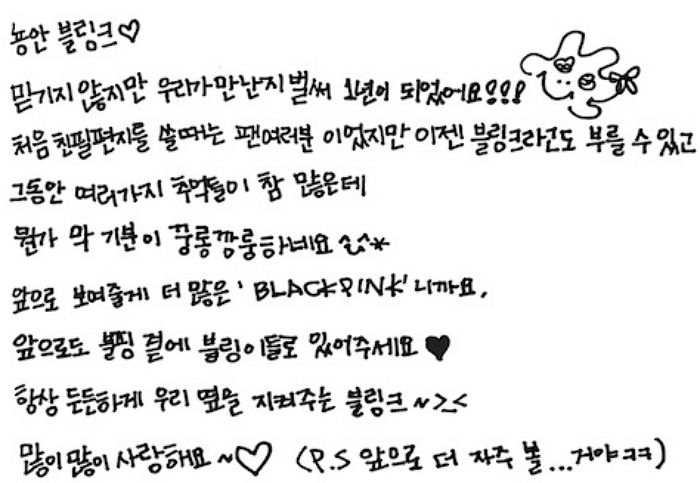 뇽안 블링크♡
믿기지 않지만 우리가 만난지 벌써 1년이 되었어요!!!
처음 친필편지를 쓸때는 팬여러분 이었지만 이젠 블링크라고도 부를 수 있고
그동안 여러가지 추억들이 참 많은데
뭔가 막 기분이 꾸룽깡룽하네요 ^^*
앞으로 보여줄게 더 많은 'BLACKPINK'니까요.
앞으로도 블핑 곁에 블링이들로 있어주세요 ♥
항상 든든하게 우리 옆을 지켜주는 블링크 ~>_<
많이 많이 사랑해요 ~♡ (P.S 앞으로 더 자주 볼...거야ㅋㅋ)